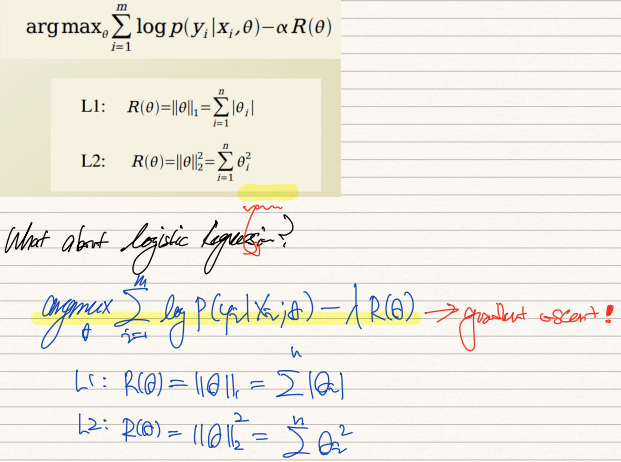 arg max_θ ∑_{i=1}^{m} log p(y_i|x_i,θ)−α R(θ)
L1: R(θ)=‖θ‖_1=∑_{i=1}^{n}|θ_i|
L2: R(θ)=‖θ‖_2^2=∑_{i=1}^{n} θ_i^2
What about logistic Regression?
argmax_θ ∑_{i=1}^{m} log P(y_i|x_i;θ) − λ R(θ) → gradient ascent!
L1: R(θ) = ‖θ‖_1 = ∑^{n} |θ_i|
L2: R(θ) = ‖θ‖_2^2 = ∑^{n} θ_i^2